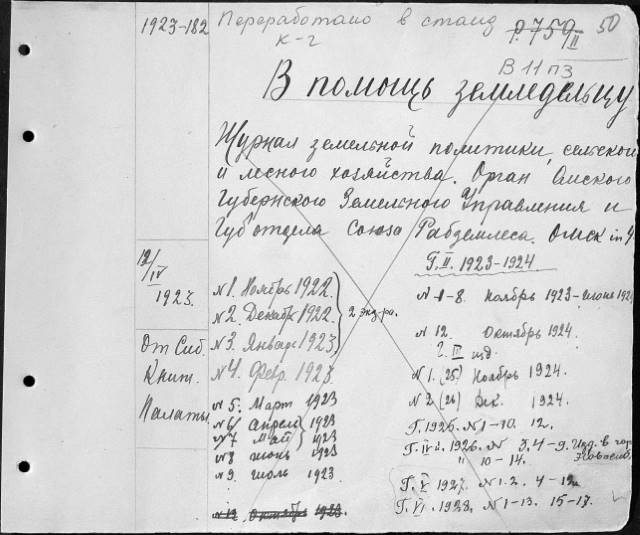 1923-182
Переработано в станд
к-г
Р.759/II 50
В 11 пз
В помощь земледельцу
Журнал земельной политики, сельского
и лесного хозяйства. Орган Омского
Губернского Земельного Управления и
Губ'отдела Союза Рабземлеса. Омск in 4
12/IV
1923.
От Сиб.
Книж.
Палаты
№1. Ноябрь 1922.
№2. Декабрь 1922.
2 экз.
№3. Январь 1923
№4. Февр. 1923
№5. Март 1923
№6 Апрель 1923
№7 Май 1923
№8 июнь 1923
№9. июль 1923.
№12 Октябрь 1923.
Г.II. 1923-1924
№1-8. Ноябрь 1923-июнь 1924
№12. Октябрь 1924.
Г. III изд.
№1. (25) Ноябрь 1924.
№2 (26) Дек. 1924.
Г. 1925. №1-10. 12.
Г. IV 1926. № 3,4-9. Изд. в гор.
" 10-14.
Г. V 1927. №1.2. 4-12
Г. VI. 1928. №1-13. 15-17.